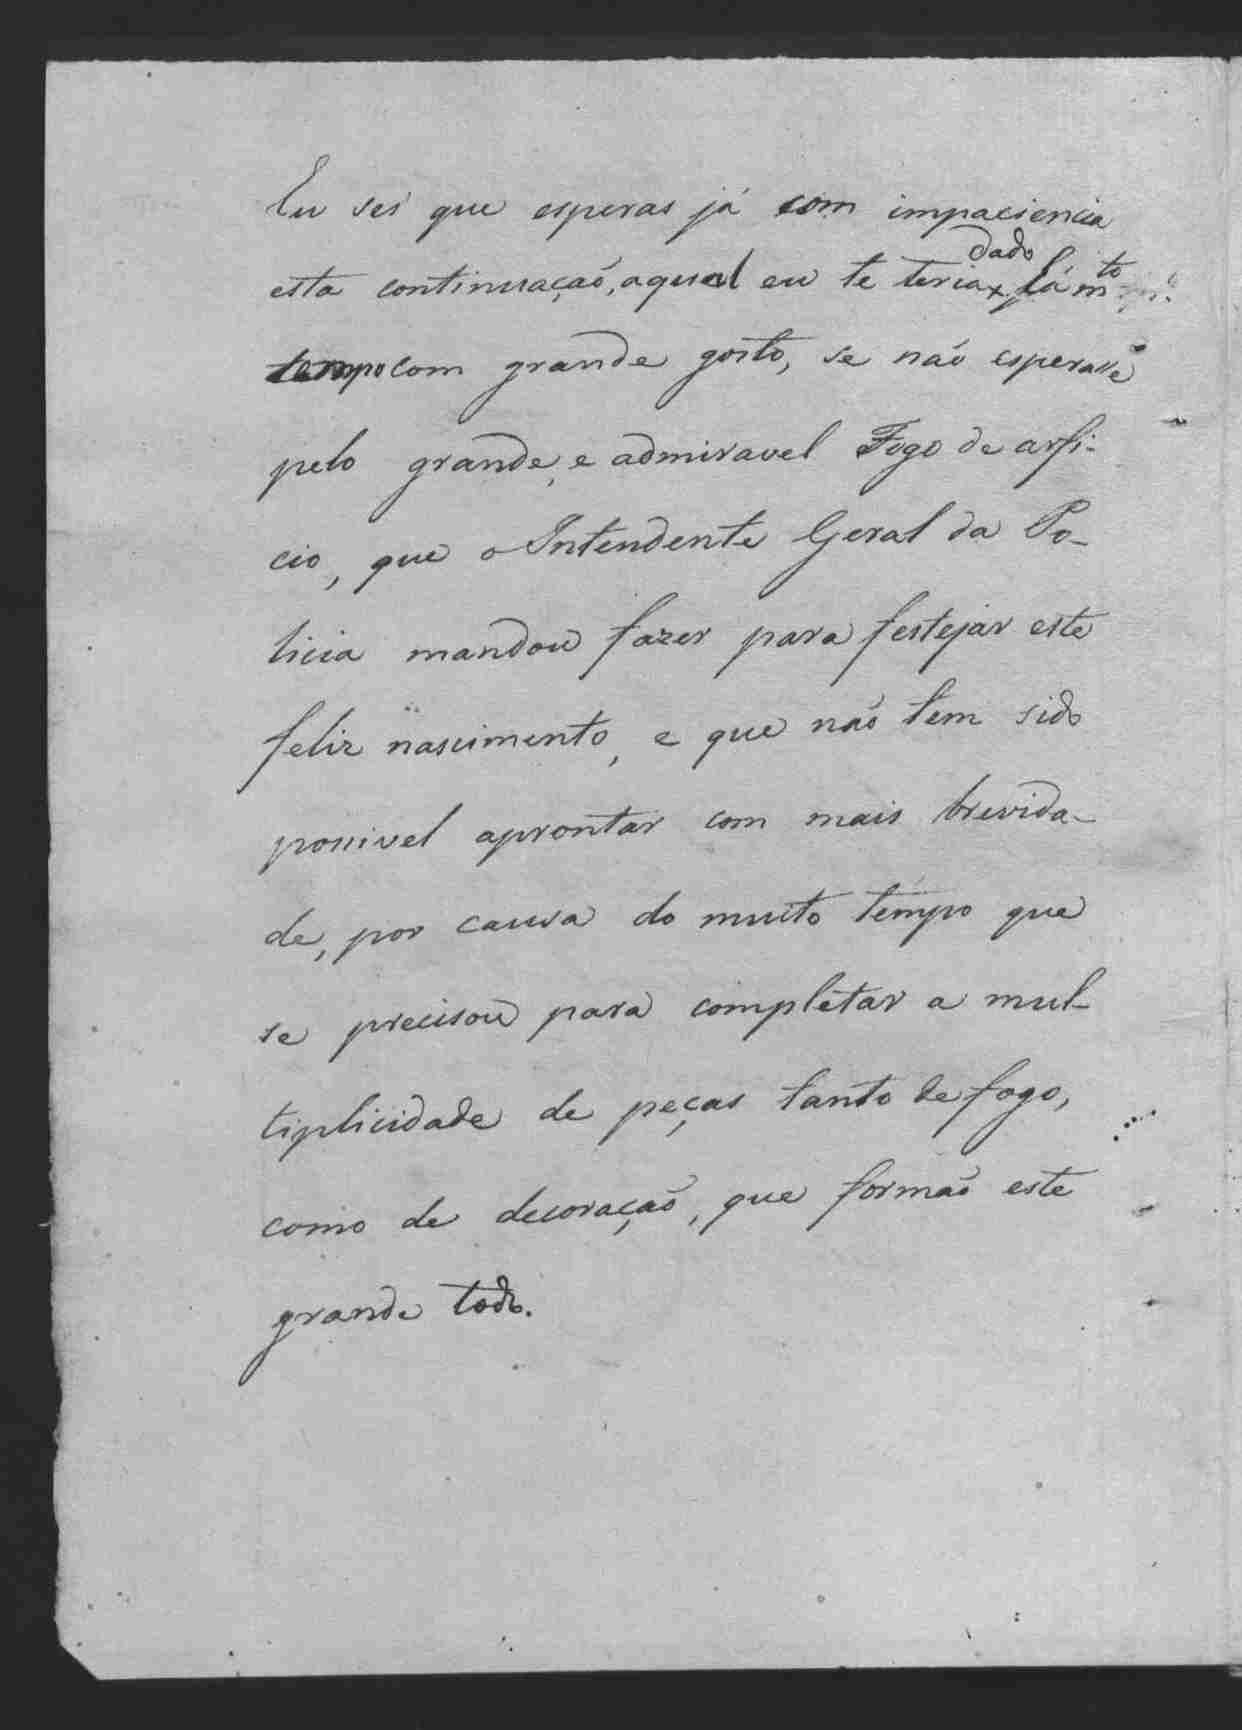 Eu sei que esperas já com impaciencia
dado
esta continuaçaõ, aqual eu te teria x há mto
tempo com grande gosto, se naõ esperasse
pelo grande, e admiravel Fogo de arfi-
cio, que o Intendente Geral da Po-
licia mandou fazer para festejar este
feliz nascimento, e que naõ tem sido
possivel aprontar com mais brevida-
de, por causa do muito tempo que
se precisou para completar a mul-
tiplicidade de peças tanto de fogo,
como de decoraçaõ, que formaõ este
grande todo.